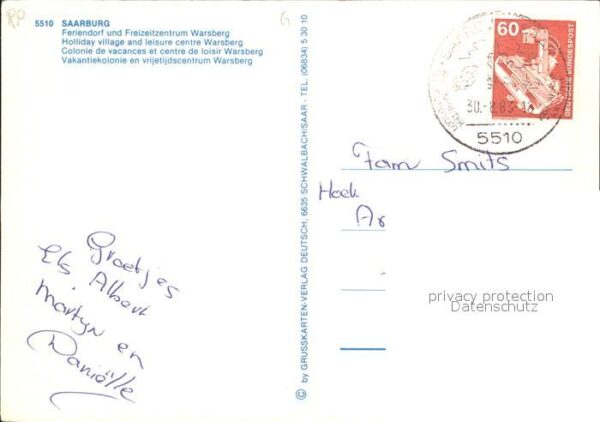 RP
G
5510 SAARBURG
Feriendorf und Freizeitzentrum Warsberg
Holliday village and leisure centre Warsberg
Colonie de vacances et centre de loisir Warsberg
Vakantiekolonie en vrijetijdscentrum Warsberg
© by GRUSSKARTEN-VERLAG DEUTSCH, 6635 SCHWALBACH/SAAR - TEL. (06834) 5 30 10
60
DEUTSCHE BUNDESPOST
5510
Fam Smits
Hoek
privacy protection
Datenschutz
Groetjes
Els Albert
Martijn en
Daniëlle